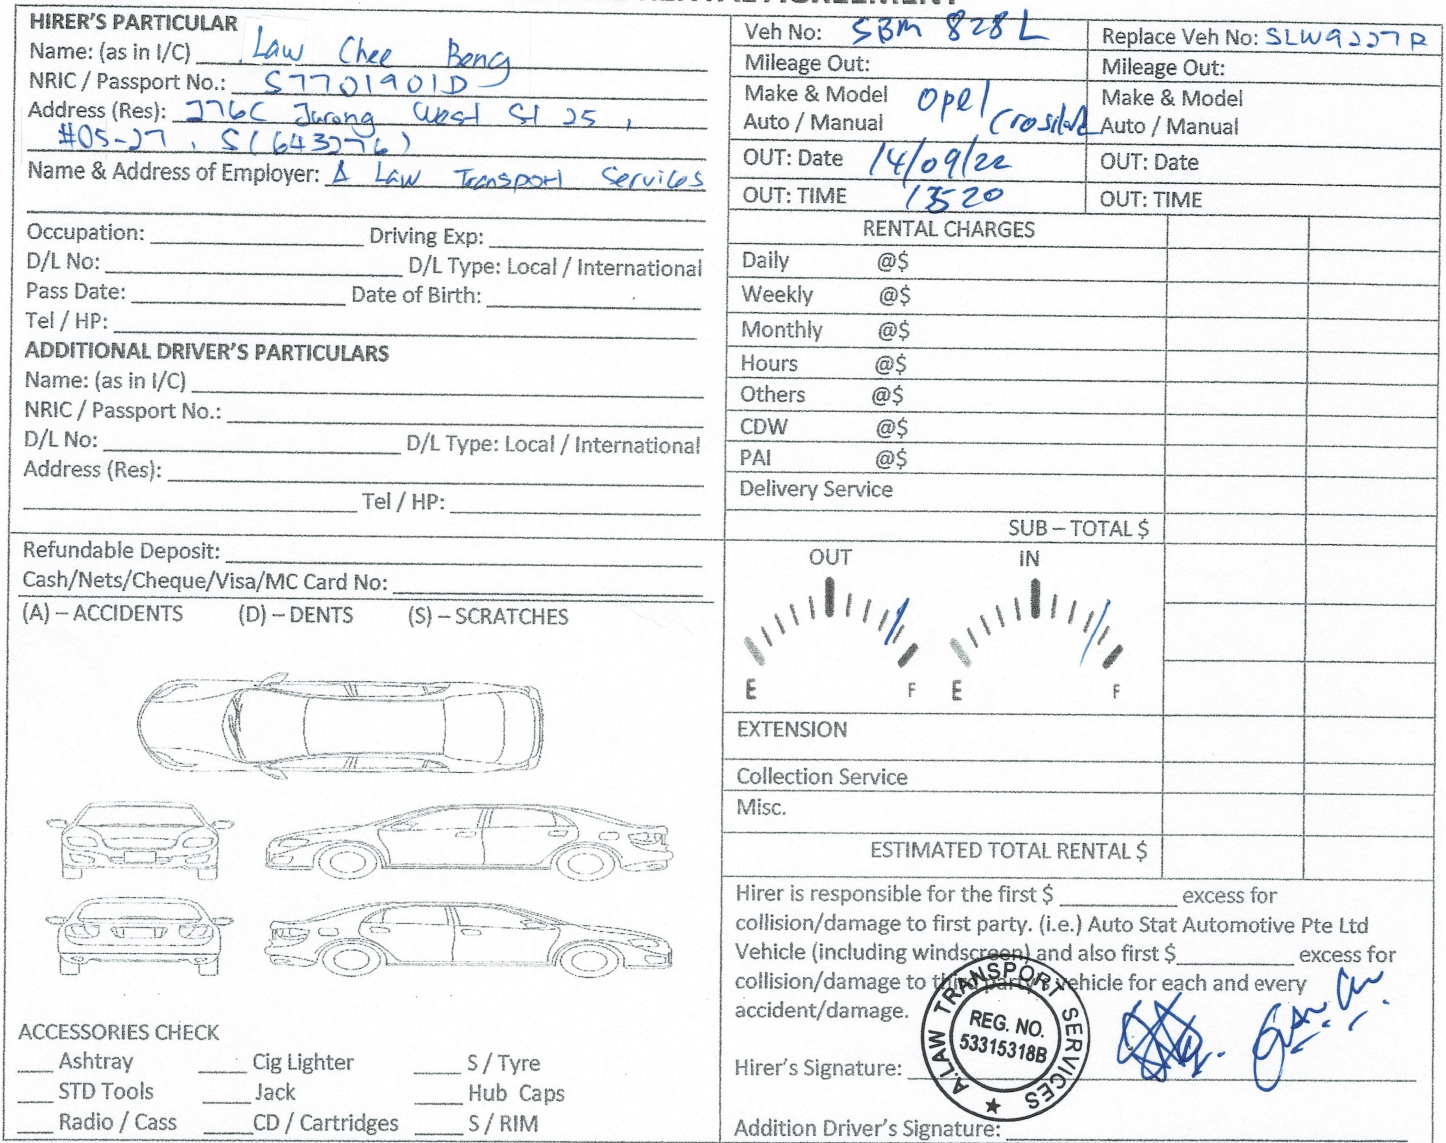 HIRER'S PARTICULAR
Name: (as in I/C) Law Chee Beng
NRIC / Passport No.: S7701901D
Address (Res): 276C Jurong West St 25,
#05-27, S(643276)
Name & Address of Employer: A Law Transport Services
Occupation: Driving Exp:
D/L No: D/L Type: Local / International
Pass Date: Date of Birth:
Tel / HP:
ADDITIONAL DRIVER'S PARTICULARS
Name: (as in I/C)
NRIC / Passport No.:
D/L No: D/L Type: Local / International
Address (Res):
Tel / HP:
Refundable Deposit:
Cash/Nets/Cheque/Visa/MC Card No:
(A) – ACCIDENTS (D) – DENTS (S) – SCRATCHES
ACCESSORIES CHECK
Ashtray Cig Lighter S / Tyre
STD Tools Jack Hub Caps
Radio / Cass CD / Cartridges S / RIM
Veh No: SBM 828L Replace Veh No: SLW9227R
Mileage Out: Mileage Out:
Make & Model Opel Crossland Make & Model
Auto / Manual Auto / Manual
OUT: Date 14/09/22 OUT: Date
OUT: TIME 1520 OUT: TIME
RENTAL CHARGES
Daily @$
Weekly @$
Monthly @$
Hours @$
Others @$
CDW @$
PAI @$
Delivery Service
SUB – TOTAL $
OUT IN
E F E F
EXTENSION
Collection Service
Misc.
ESTIMATED TOTAL RENTAL $
Hirer is responsible for the first $ excess for
collision/damage to first party. (i.e.) Auto Stat Automotive Pte Ltd
Vehicle (including windscreen) and also first $ excess for
collision/damage to third party's vehicle for each and every
accident/damage.
A.LAW TRANSPORT SERVICES
REG. NO.
53315318B
Hirer's Signature:
Addition Driver's Signature: